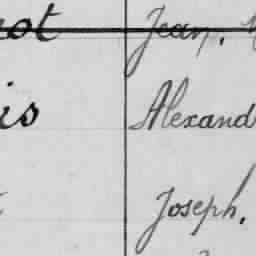 not Jean, 
is Alexand
Joseph,